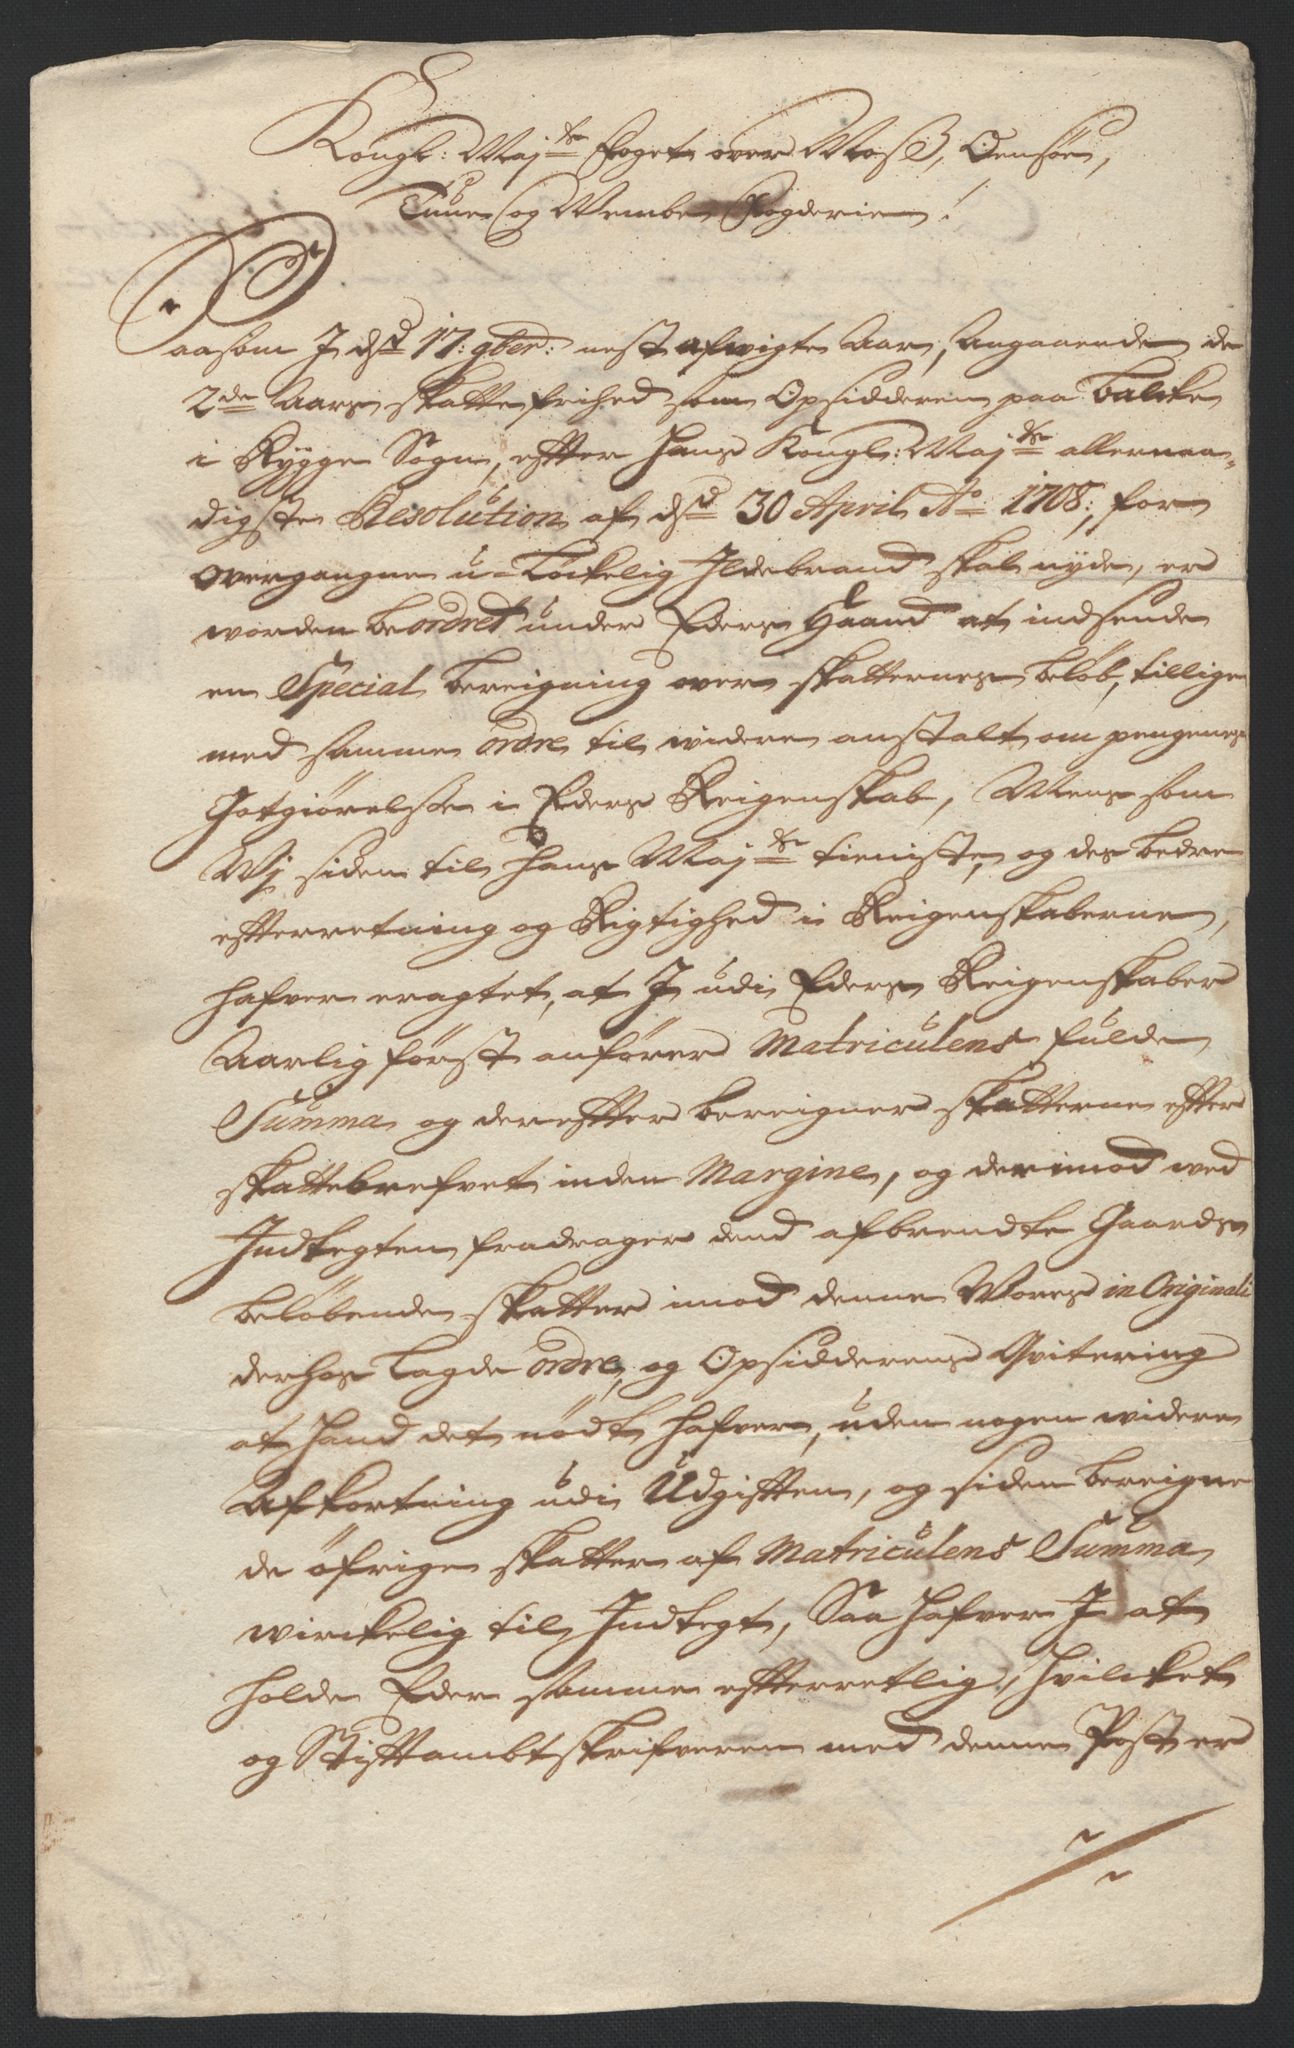 Kongl: Maj:ts foget over Moss, Oensöe,
Tune og Wembe Fogderie!
Saasom I dsd 17: 9ber: nest afwigte Aar, Angaaende de
2de Aars skatte frihed som Opsidderen paa Balcke
i Rygge Sogn, efter Hans Kongl: Maj:ts allernaa-
digste Resolution af dsd 30 April Ao 1708, for
overgangne u-Löckelig Ildebrand skal nyde, er
worden beordret under Eders Haand at indsende
en Special bereigning over skatternes belöb, tillige
med samme ordre til widere anstalt om pengenes
Gotgiörelse i Eders Reigenskab, Mens som
Wj siden til Hans Maj:ts tieniste, og des bedre
efterretning og Rigtighed i Reigenskaberne,
hafver eragtet, at I udi Eders Reigenskaber
Aarlig först anförer Matriculens fulde
Summa og derefter bereigner skatterne efter
skattebrefvet inden Margine, og derimod wed
Indtegten fradrager dend afbrendte Gaards
belöbende skatter imod denne Wores in Originali
derhos lagde ordre, og Opsidderens Qvitering
at hand det nödt hafver, uden nogen widere
Afkortning udi Udgiften, og siden bereigne
de öfrige skatter af Matriculens Summa
wirckelig til Indtegt, Saa hafver I at
holde Eder samme efterretlig, hvilcket
og Stiftambtskrifveren med denne Post er